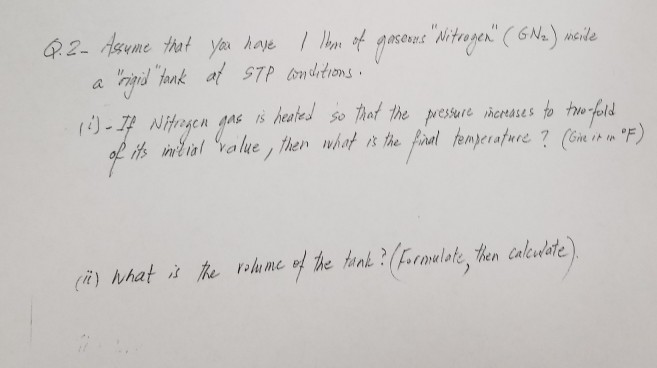 Q.2- Assume that you have 1 lbm of gaseous "Nitrogen" (GN₂) inside
a "rigid" tank at STP conditions.
(i)- If Nitrogen gas is heated so that the pressure increases to two-fold
of its initial value, then what is the final temperature? (Give it in °F)
(ii) What is the volume of the tank? (Formulate, then calculate).